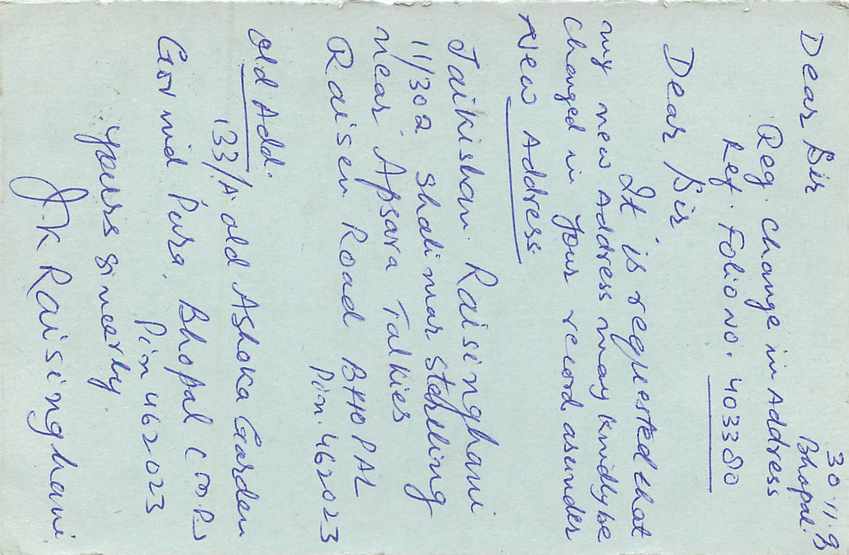 30.11.9
Bhopal.
Dear Sir
Reg. Change in Address
Ref. Folio No. 403380
Dear Sir
It is requested that
my new Address may kindly be
changed in your record as under
New Address
Jaikishan Raisinghani
11/302 Shalimar Starling
Near Apsara Talkies
Raisen Road BHOPAL
Pin. 462023
Old Add.
133/A. old Ashoka Garden
Govind Pura, Bhopal (M.P.)
Pin 462023
Yours Sincerly
J.K Raisinghani